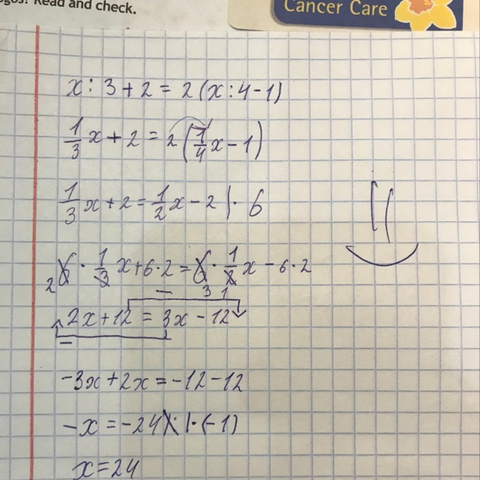 ogos! Read and check.
Cancer Care
x : 3 + 2 = 2 (x : 4 - 1)
1/3 x + 2 = 2 (1/4 x - 1)
1/3 x + 2 = 1/2 x - 2 | · 6
2 6 · 1/3 x + 6 · 2 = 6 3 · 1/2 1 x - 6 · 2
2x + 12 = 3x - 12
-3x + 2x = -12 - 12
-x = -24 | · (-1)
x = 24